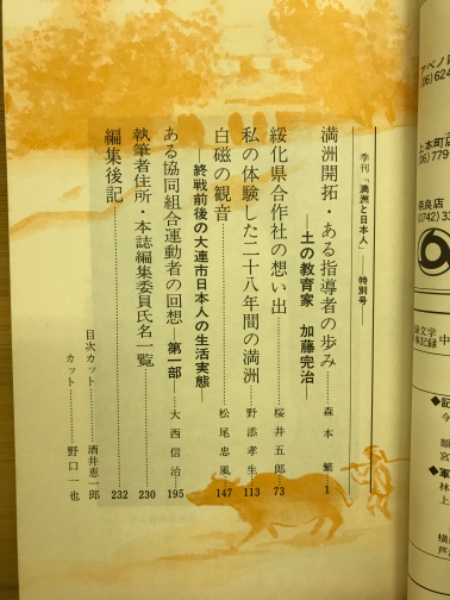 季刊「満洲と日本人」――特別号――
満洲開拓・ある指導者の歩み
――土の教育家 加藤完治――……森本繁…1
綏化県合作社の想い出……桜井五郎…73
私の体験した二十八年間の満洲……野添孝生…113
白磁の観音……松尾忠風…147
――終戦前後の大連市日本人の生活実態――
ある協同組合運動者の回想――第一部――……大西信治…195
執筆者住所・本誌編集委員氏名一覧……230
編集後記……232
目次カット……酒井恵一郎
カット……野口一也
アベノ
(06)624
上本町店
(06)779
奈良店
(0742)33
文学
記録
中
◆記
今
宮
◆軍
林
上
横
芦